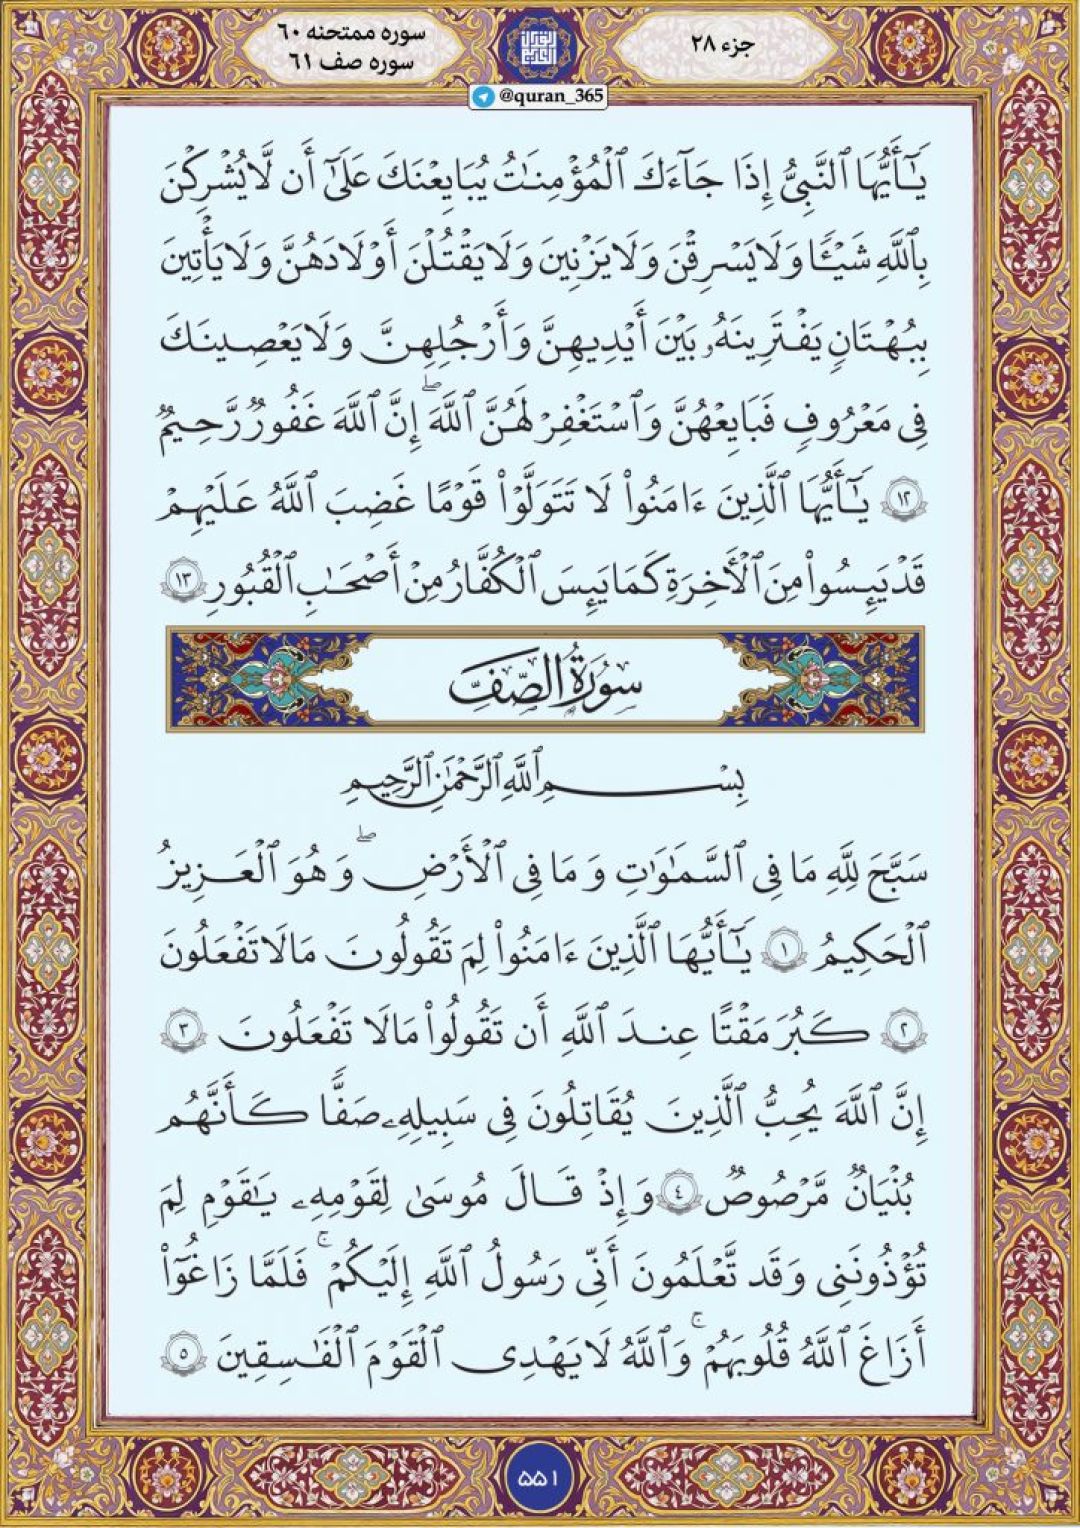 جزء ۲۸
سوره ممتحنه ۶۰
سوره صف ۶۱
@quran_365
يَٰٓأَيُّهَا ٱلنَّبِيُّ إِذَا جَآءَكَ ٱلْمُؤْمِنَٰتُ يُبَايِعْنَكَ عَلَىٰٓ أَن لَّا يُشْرِكْنَ
بِٱللَّهِ شَيْـًٔا وَلَا يَسْرِقْنَ وَلَا يَزْنِينَ وَلَا يَقْتُلْنَ أَوْلَٰدَهُنَّ وَلَا يَأْتِينَ
بِبُهْتَانٍ يَفْتَرِينَهُۥ بَيْنَ أَيْدِيهِنَّ وَأَرْجُلِهِنَّ وَلَا يَعْصِينَكَ
فِى مَعْرُوفٍ فَبَايِعْهُنَّ وَٱسْتَغْفِرْ لَهُنَّ ٱللَّهَ ۖ إِنَّ ٱللَّهَ غَفُورٌ رَّحِيمٌ
١٢ يَٰٓأَيُّهَا ٱلَّذِينَ ءَامَنُوا۟ لَا تَتَوَلَّوْا۟ قَوْمًا غَضِبَ ٱللَّهُ عَلَيْهِمْ
قَدْ يَئِسُوا۟ مِنَ ٱلْأَخِرَةِ كَمَا يَئِسَ ٱلْكُفَّارُ مِنْ أَصْحَٰبِ ٱلْقُبُورِ ١٣
سُورَةُ الصَّفِّ
بِسْمِ ٱللَّهِ ٱلرَّحْمَٰنِ ٱلرَّحِيمِ
سَبَّحَ لِلَّهِ مَا فِى ٱلسَّمَٰوَٰتِ وَمَا فِى ٱلْأَرْضِ ۖ وَهُوَ ٱلْعَزِيزُ
ٱلْحَكِيمُ ١ يَٰٓأَيُّهَا ٱلَّذِينَ ءَامَنُوا۟ لِمَ تَقُولُونَ مَا لَا تَفْعَلُونَ
٢ كَبُرَ مَقْتًا عِندَ ٱللَّهِ أَن تَقُولُوا۟ مَا لَا تَفْعَلُونَ ٣
إِنَّ ٱللَّهَ يُحِبُّ ٱلَّذِينَ يُقَٰتِلُونَ فِى سَبِيلِهِۦ صَفًّا كَأَنَّهُم
بُنْيَٰنٌ مَّرْصُوصٌ ٤ وَإِذْ قَالَ مُوسَىٰ لِقَوْمِهِۦ يَٰقَوْمِ لِمَ
تُؤْذُونَنِى وَقَد تَّعْلَمُونَ أَنِّى رَسُولُ ٱللَّهِ إِلَيْكُمْ ۖ فَلَمَّا زَاغُوٓا۟
أَزَاغَ ٱللَّهُ قُلُوبَهُمْ ۚ وَٱللَّهُ لَا يَهْدِى ٱلْقَوْمَ ٱلْفَٰسِقِينَ ٥
۵۵۱